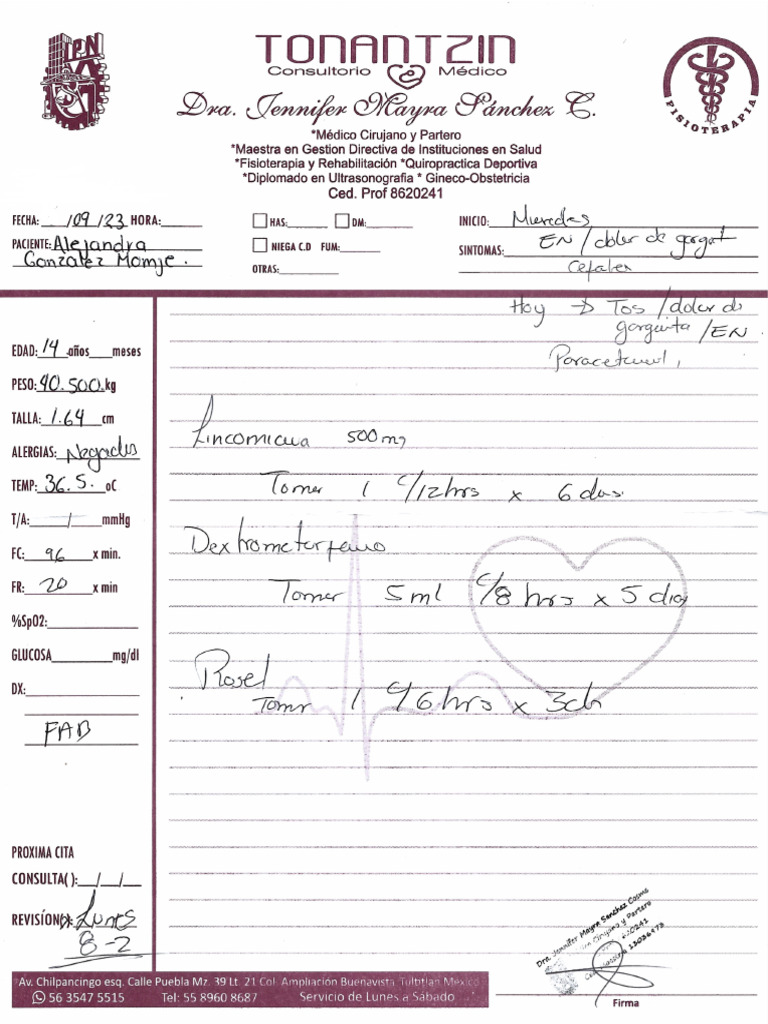 IPN
TONANTZIN
Consultorio Médico
Dra. Jennifer Mayra Sánchez C.
*Médico Cirujano y Partero
*Maestra en Gestion Directiva de Instituciones en Salud
*Fisioterapia y Rehabilitación *Quiropractica Deportiva
*Diplomado en Ultrasonografia * Gineco-Obstetricia
Ced. Prof 8620241
FISIOTERAPIA
FECHA: /09/23 HORA:
HAS: DM:
INICIO: Miercoles
PACIENTE: Alejandra
Gonzalez Momje.
NIEGA C.D FUM:
SINTOMAS: EN/dolor de gargat
OTRAS:
Cefalea
Hoy → Tos/dolor de
garganta/EN
Paracetamol,
EDAD: 14 años meses
PESO: 40.500 kg
TALLA: 1.64 cm
ALERGIAS: Negadas
TEMP: 36.5. oC
T/A: / mmHg
FC: 96 x min.
FR: 20 x min
%SpO2:
GLUCOSA mg/dl
DX:
FAB
Lincomicina 500mg
Tomar 1 c/12hrs x 6 dias.
Dextrometorfano
Tomar 5ml c/8 hrs x 5 dias
Rosel
Tomar 1 c/6 hrs x 3d
PROXIMA CITA
CONSULTA( ): / /
REVISIÓN( ): Lunes
8-2
Dra. Jennifer Mayra Sanchez Cosme
Cirujano y Partero
Firma
Av. Chilpancingo esq. Calle Puebla Mz. 39 Lt. 21 Col. Ampliación Buenavista, Tultitlan Mexico
56 3547 5515 Tel: 55 8960 8687 Servicio de Lunes a Sabado